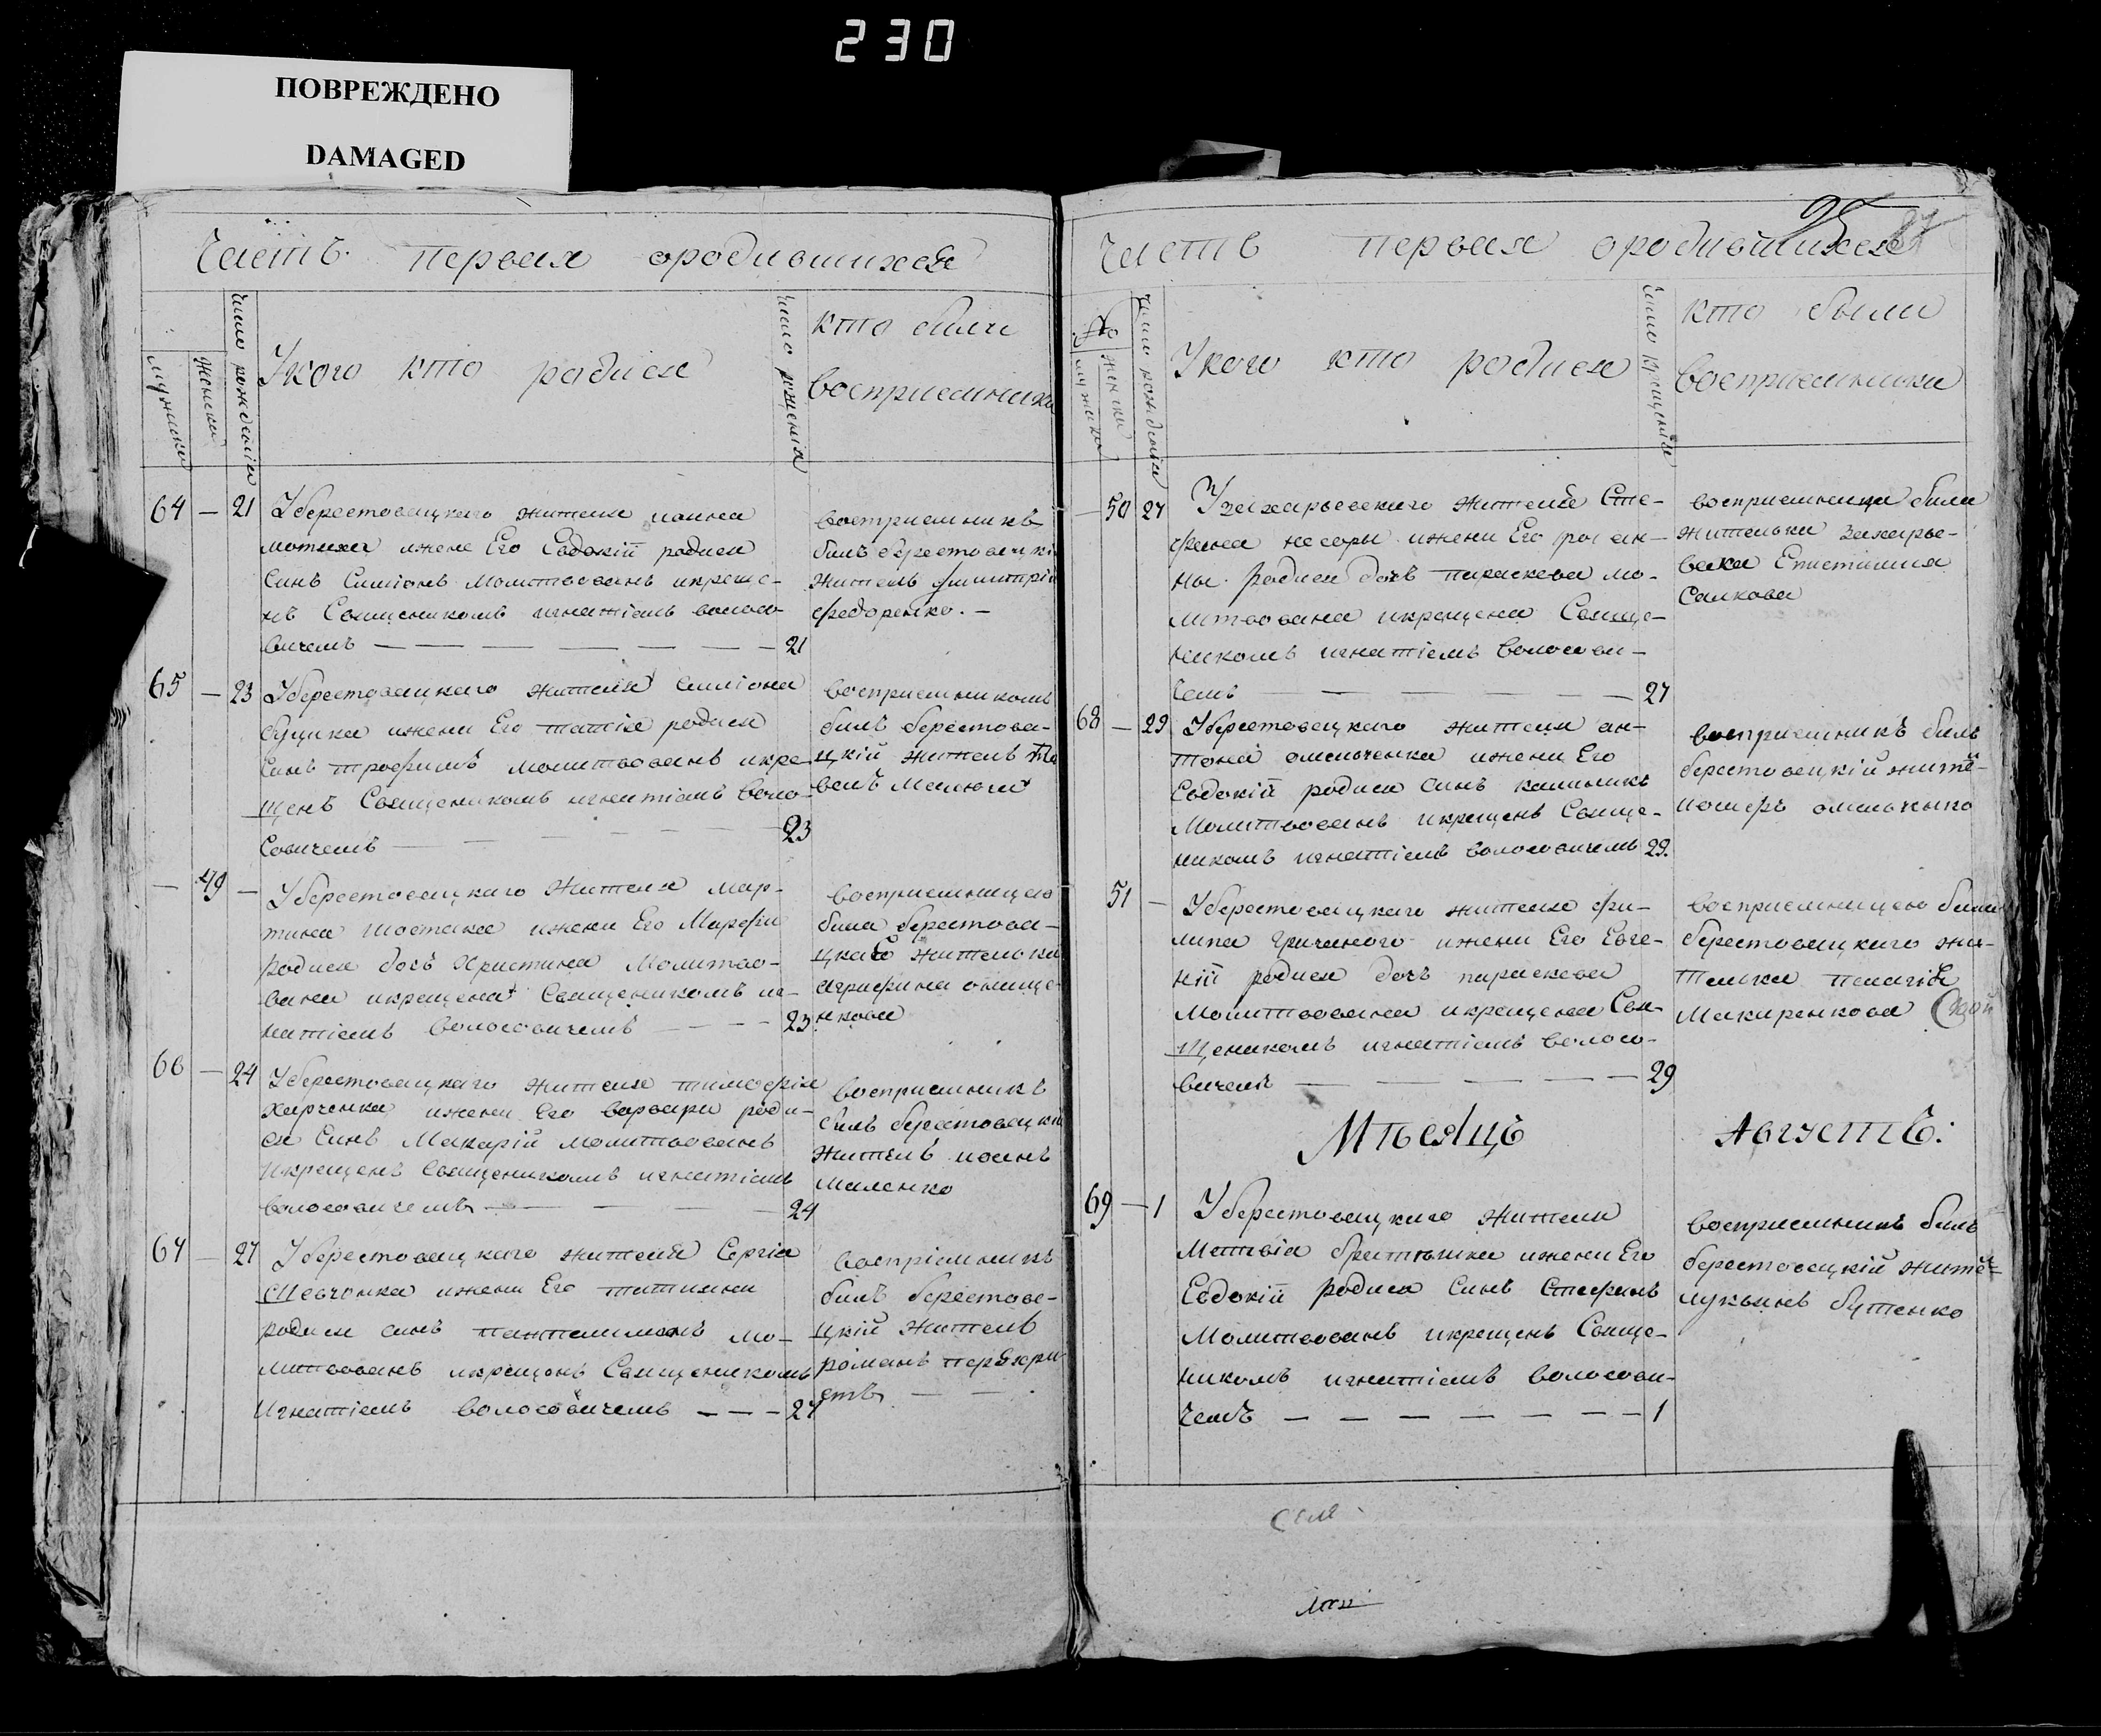 230
ПОВРЕЖДЕНО
DAMAGED
Часть первая ородившихся
мужеска
женска
число рожденія
Укого кто родися
число крещенія
кто были
воспріемники
64 — 21 Уберестовецкаго жителя иоанна
ижене Его Евдокій родися
Синъ Симіонъ Молитвованъ икреще-
нъ Священикомъ игнатіемъ волосо-
вичемъ — — — — — — — 21
востриемникъ
билъ берестовецкі
житель димитрій
федоренко. —
65 — 23 Уберестовецкаго жителя симіона
Буцика ижени Его родися
Синъ трофимъ молитвованъ икре-
щенъ Священикомъ игнатіемъ воло-
совичемъ — — — — — 23
восприемникомъ
билъ берестове-
цкій житель Па
велъ
— 49 — Уберестовецкаго жителя мар-
тина шостака ижени Его Марфи
родися дочъ Христина Молитво-
вана икрещена Священикомъ иг-
натіемъ волосовичемъ — — — 23
восприемницею
била берестове-
цкаго жителька
агрифина онище-
нкова
66 — 24 Уберестовецкаго жителя тимофія
харченка ижени Его варвари роди-
ся Синъ Макарій молитвованъ
Икрещенъ Священикомъ игнатіемъ
волосовичемъ — — — — 24
восприемникъ
билъ берестовецкій
житель иоанъ
маленко
67 — 27 Уберестовецкаго жителя Сергія
Шевченка ижени Его татияни
родися синъ пантелимонъ мо-
литвованъ икрещенъ Священикомъ
Игнатіемъ волосовичемъ — — — 27
воспріемникъ
билъ берестове-
цкій житель
романъ перехри
стъ — —
Часть первая ородившихся
25
87
№
мужеска
женска
число рожденія
Укого кто родися
число крещенія
кто были
восприемники
— 50 27 Узахарьевскаго жителя Сте-
фана ижени Его
родися дочъ параскева мо-
литвована икрещена Свяще-
никомъ игнатіемъ волосови-
чемъ — — — — 27
восприемници били
жителька захарье-
вска Епистимия
Салкова
68 — 29 Уберестовецкаго жителя ан-
тона омельченка ижени Его
Евдокій родися синъ калиникъ
Молитвованъ икрещенъ Свяще-
никомъ игнатіемъ волосовичемъ 29.
восприемникъ билъ
берестовецкій жите-
омельченко
51 — Уберестовецкаго жителя фи-
липа гричаного ижени Его Евге-
ній родися дочъ параскева
Молитвована икрещена Свя-
щеникомъ игнатіемъ волосо-
вичемъ — — — — — 29
восприемницею била
берестовецкаго жи-
телька пелагія
Макаренкова
Мѣсяцъ Августъ:
69 — 1 Уберестовецкаго жителя
Матвія ижени Его
Евдокій родися Синъ Стефанъ
Молитвованъ икрещенъ Свяще-
никомъ игнатіемъ волосови-
чемъ — — — — — — — 1
восприемникъ билъ
берестовецкій жите-
лукьянъ бутенко